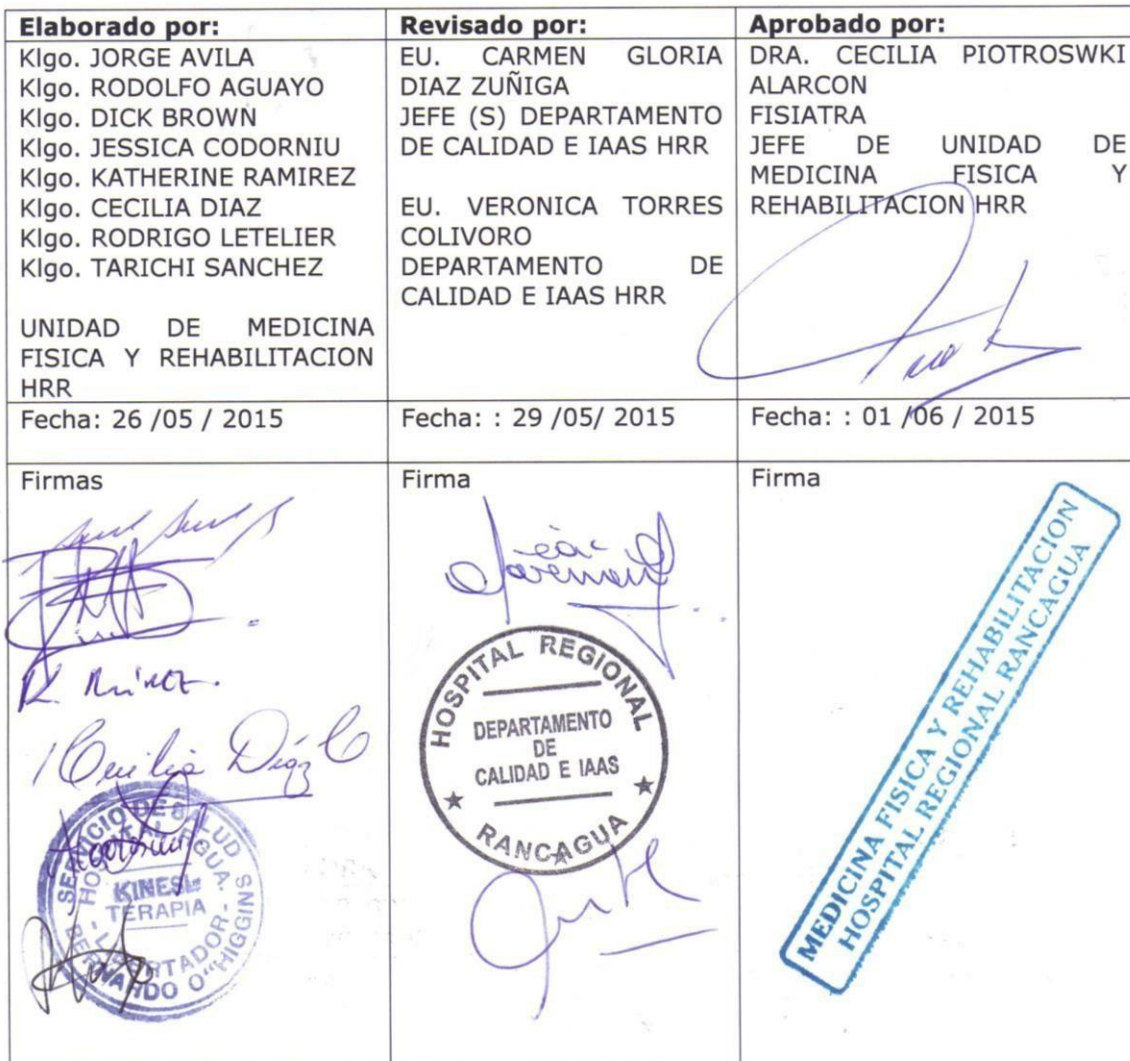 Elaborado por:
Klgo. JORGE AVILA
Klgo. RODOLFO AGUAYO
Klgo. DICK BROWN
Klgo. JESSICA CODORNIU
Klgo. KATHERINE RAMIREZ
Klgo. CECILIA DIAZ
Klgo. RODRIGO LETELIER
Klgo. TARICHI SANCHEZ
UNIDAD DE MEDICINA
FISICA Y REHABILITACION
HRR
Revisado por:
EU. CARMEN GLORIA
DIAZ ZUÑIGA
JEFE (S) DEPARTAMENTO
DE CALIDAD E IAAS HRR
EU. VERONICA TORRES
COLIVORO
DEPARTAMENTO DE
CALIDAD E IAAS HRR
Aprobado por:
DRA. CECILIA PIOTROSWKI
ALARCON
FISIATRA
JEFE DE UNIDAD DE
MEDICINA FISICA Y
REHABILITACION HRR
Fecha: 26 /05 / 2015
Fecha: : 29 /05/ 2015
Fecha: : 01 /06 / 2015
Firmas
Cecilia Díaz C
SERVICIO DE SALUD
HOSPITAL
KINESI-
TERAPIA
LIBERTADOR
BERNARDO O"HIGGINS
Firma
HOSPITAL REGIONAL
DEPARTAMENTO
DE
CALIDAD E IAAS
RANCAGUA
Firma
MEDICINA FISICA Y REHABILITACION
HOSPITAL REGIONAL RANCAGUA